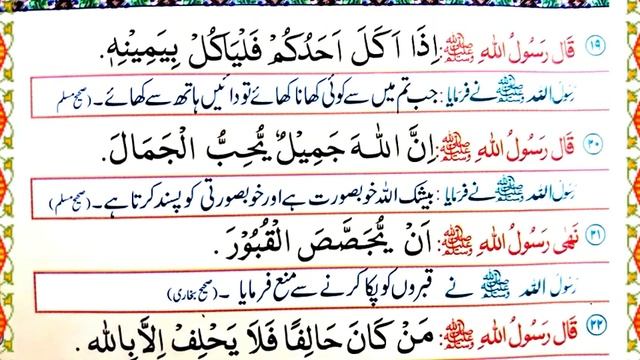 ۱۹ قَالَ رَسُوْلُ اللهِ ﷺ: اِذَا اَكَلَ اَحَدُكُمْ فَلْيَاكُلْ بِيَمِيْنِهٖ.
رَسُوْلُ اللہ ﷺ نے فرمایا: جب تم میں سے کوئی کھانا کھائے تو دائیں ہاتھ سے کھائے۔ (صحیح مسلم)
۲۰ قَالَ رَسُوْلُ اللهِ ﷺ: اِنَّ اللهَ جَمِيْلٌ يُّحِبُّ الْجَمَالَ.
رَسُوْلُ اللہ ﷺ نے فرمایا: بیشک اللہ خوبصورت ہے اور خوبصورتی کو پسند کرتا ہے۔ (صحیح مسلم)
۲۱ نَهٰى رَسُوْلُ اللهِ ﷺ: اَنْ يُّجَصَّصَ الْقُبُوْرَ.
رَسُوْلُ اللہ ﷺ نے قبروں کو پکا کرنے سے منع فرمایا۔ (صحیح بخاری)
۲۲ قَالَ رَسُوْلُ اللهِ ﷺ: مَنْ كَانَ حَالِفًا فَلَا يَحْلِفْ اِلَّا بِاللهِ.